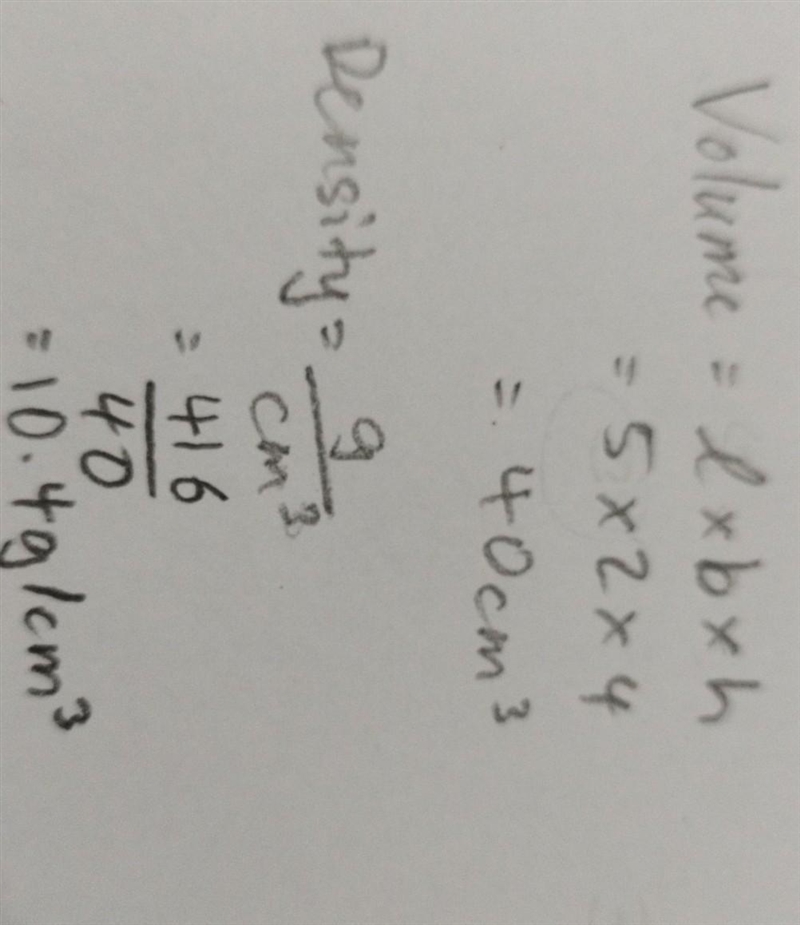 Volume = l x b x h
= 5 x 2 x 4
= 40cm³
Density = g
cm³
= 416
40
= 10.4g/cm³